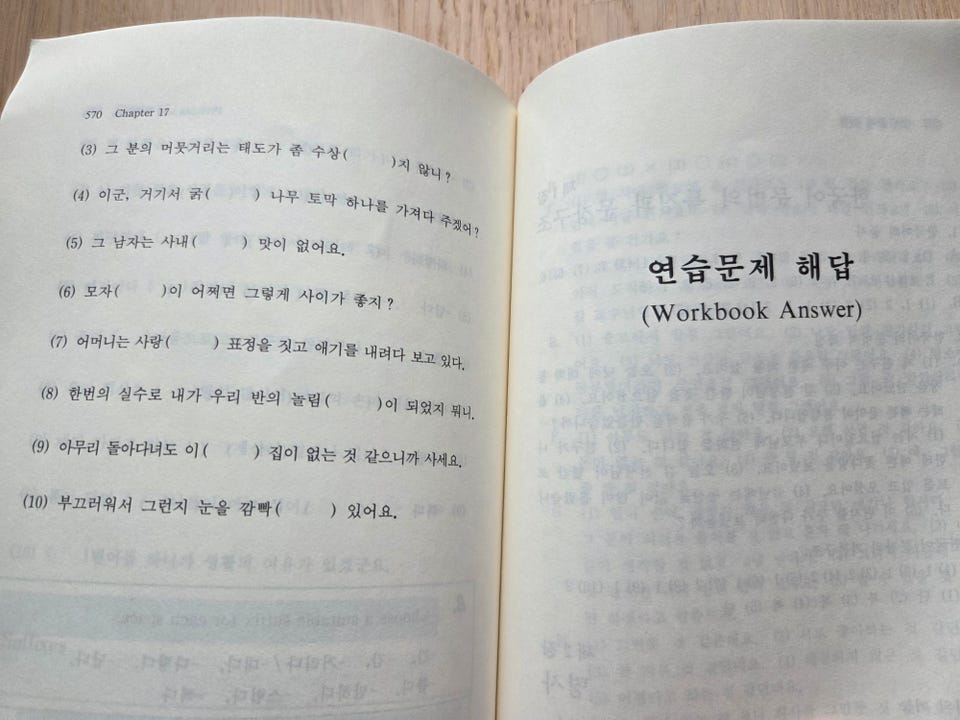 570 Chapter 17
(3) 그 분의 머뭇거리는 태도가 좀 수상( )지 않니?
(4) 이군, 거기서 굵( ) 나무 토막 하나를 가져다 주겠어?
(5) 그 남자는 사내( ) 맛이 없어요.
(6) 모자( )이 어쩌면 그렇게 사이가 좋지?
(7) 어머니는 사랑( ) 표정을 짓고 애기를 내려다 보고 있다.
(8) 한번의 실수로 내가 우리 반의 놀림( )이 되었지 뭐니.
(9) 아무리 돌아다녀도 이( ) 집이 없는 것 같으니까 사세요.
(10) 부끄러워서 그런지 눈을 깜빡( ) 있어요.
연습문제 해답
(Workbook Answer)